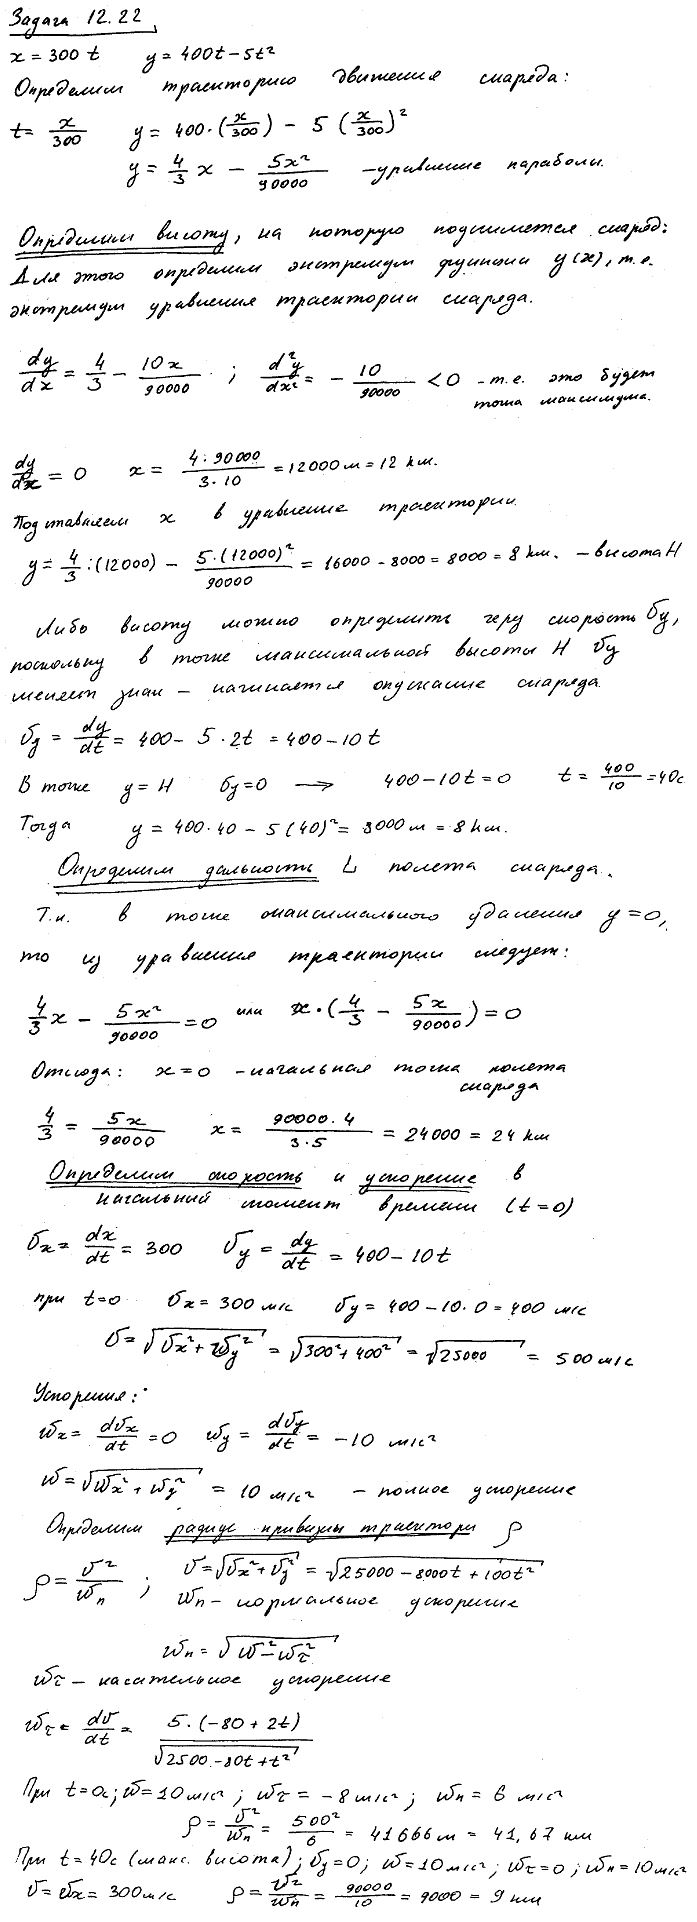 Задача 12.22
x = 300 t y = 400t - 5t²
Определим траекторию движения снаряда:
t = x/300 y = 400·(x/300) - 5 (x/300)²
y = 4/3 x - 5x²/90000 - уравнение параболы.
Определим высоту, на которую поднимется снаряд:
Для этого определим экстремум функции y(x), т.е.
экстремум уравнения траектории снаряда.
dy/dx = 4/3 - 10x/90000 ; d²y/dx² = - 10/90000 < 0 - т.е. это будет
точка максимума.
dy/dx = 0 x = 4·90000/3·10 = 12000 м = 12 км.
Подставляем x в уравнение траектории.
y = 4/3 ·(12000) - 5·(12000)²/90000 = 16000 - 8000 = 8000 = 8 км. - высота H
Либо высоту можно определить через скорость υy,
поскольку в точке максимальной высоты H υy
меняет знак - начинается опускание снаряда.
υy = dy/dt = 400 - 5·2t = 400 - 10t
В точке y = H υy = 0 → 400 - 10t = 0 t = 400/10 = 40с
Тогда y = 400·40 - 5(40)² = 8000 м = 8 км.
Определим дальность L полета снаряда.
Т.к. в точке максимального удаления y = 0,
то из уравнения траектории следует:
4/3 x - 5x²/90000 = 0 или x·(4/3 - 5x/90000) = 0
Отсюда: x = 0 - начальная точка полета
снаряда
4/3 = 5x/90000 x = 90000·4/3·5 = 24000 = 24 км
Определим скорость и ускорение в
начальный момент времени (t = 0)
υx = dx/dt = 300 υy = dy/dt = 400 - 10t
при t = 0 υx = 300 м/с υy = 400 - 10·0 = 400 м/с
υ = √(υx² + υy²) = √(300² + 400²) = √25000 = 500 м/с
Ускорения:
wx = dυx/dt = 0 wy = dυy/dt = -10 м/с²
w = √(wx² + wy²) = 10 м/с² - полное ускорение
Определим радиус кривизны траектори ρ
ρ = υ²/wn ; υ = √(υx² + υy²) = √(25000 - 8000t + 100t²)
wn - нормальное ускорение
wn = √(w² - wτ²)
wτ - касательное ускорение
wτ = dυ/dt = 5·(-80 + 2t)/√(2500 - 80t + t²)
При t = 0с; w = 10 м/с²; wτ = -8 м/с²; wn = 6 м/с²
ρ = υ²/wn = 500²/6 = 41666 м = 41,67 км
При t = 40с (макс. высота); υy = 0; w = 10 м/с²; wτ = 0; wn = 10 м/с²
υ = υx = 300 м/с ρ = υ²/wn = 90000/10 = 9000 = 9 км